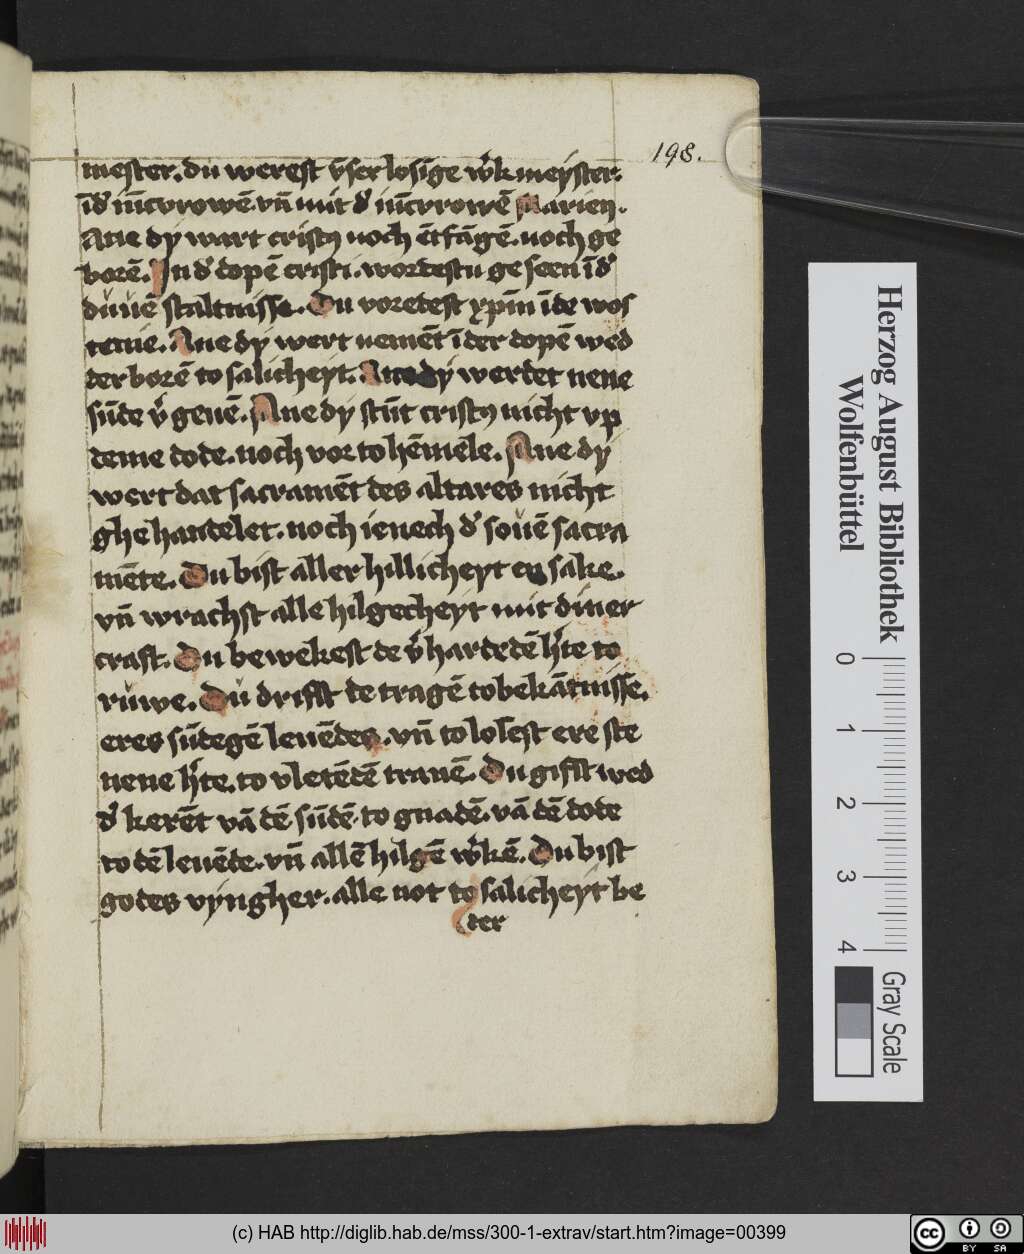 198.
mester. du werest v̄ser losīge w̾k meyster.
īd̾ iūcvrowē. vn̄ mit d̾ iūcvrowē Marien.
Ane dy wart cristꝰ noch ētfāgē. noch ge
borē. In d̾ dopē cristi. wordestu ge seen ī d̾
duuē staltnisse. Du voretest xp̄m ī de wos
tenie. Ane dy wert nemēt ī der dopē wed
der borē to salicheyt. Ane dy werdet nene
sūde v̾ geuē. Ane dy stūt cristꝰ nicht vp
deme dode. noch vor to hēmele. Ane dy
wert dat sacramēt des altares nicht
ghe handelet. noch ienech d̾ souē sacra
mēte. Du bist aller hillicheyt en sake.
vn̄ wrachst alle hilgecheyt mit diner
craft. Du bewekest de v̾hardedē h̾te to
ruwe. Du drifst de tragē to bekātnisse.
eres sūdegē leuēdes. vn̄ to losest ere ste
nene h̾te. to vletēdē tranē. Du gifst wed
d̾ kerēt vā dē sūdē to gnadē. vā dē dode
to dē leuēde. vn̄ allē hilgē w̾kē. Du bist
godes vyngher. alle not to salicheyt be
der
Herzog August Bibliothek
Wolfenbüttel
0 1 2 3 4
Gray Scale
(c) HAB http://diglib.hab.de/mss/300-1-extrav/start.htm?image=00399
cc BY SA